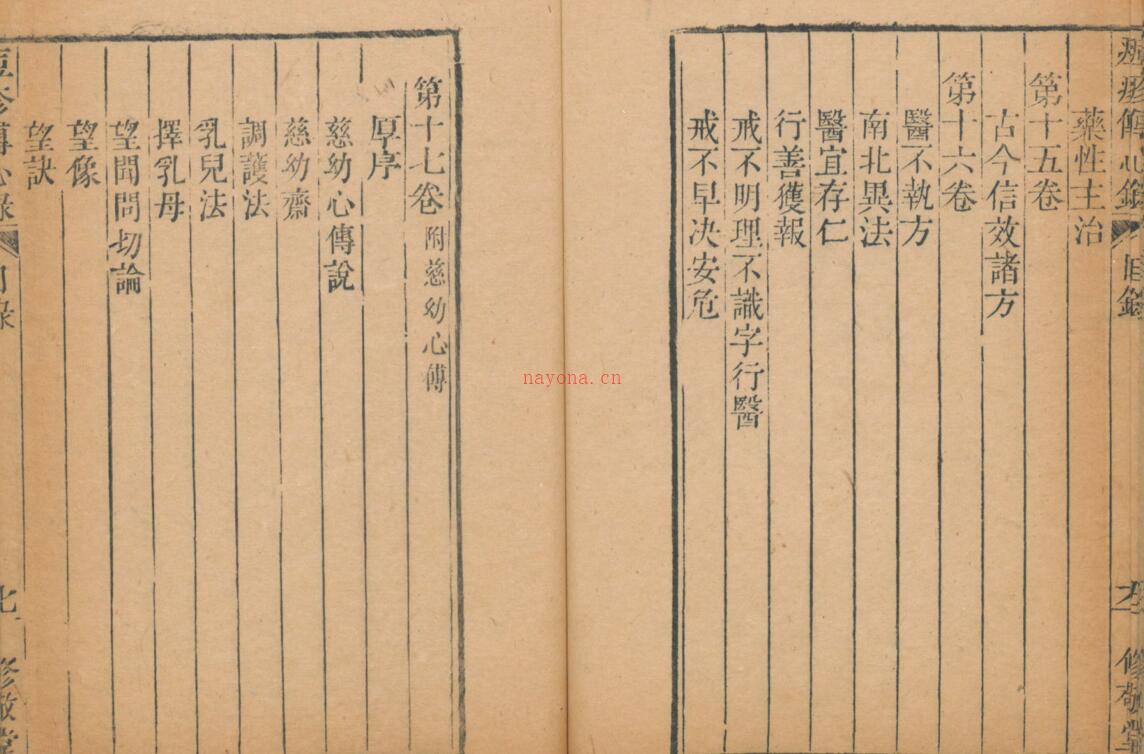 痘疹傳心錄 目錄 修敬堂
藥性主治
第十五卷
古今信效諸方
第十六卷
醫不執方
南北異法
醫宜存仁
行善獲報
戒不明理不識字行醫
戒不早決安危
第十七卷 附慈幼心傳
原序
慈幼心傳說
慈幼齋
調護法
乳兒法
擇乳母
望聞問切論
望像
望訣
nayona.cn